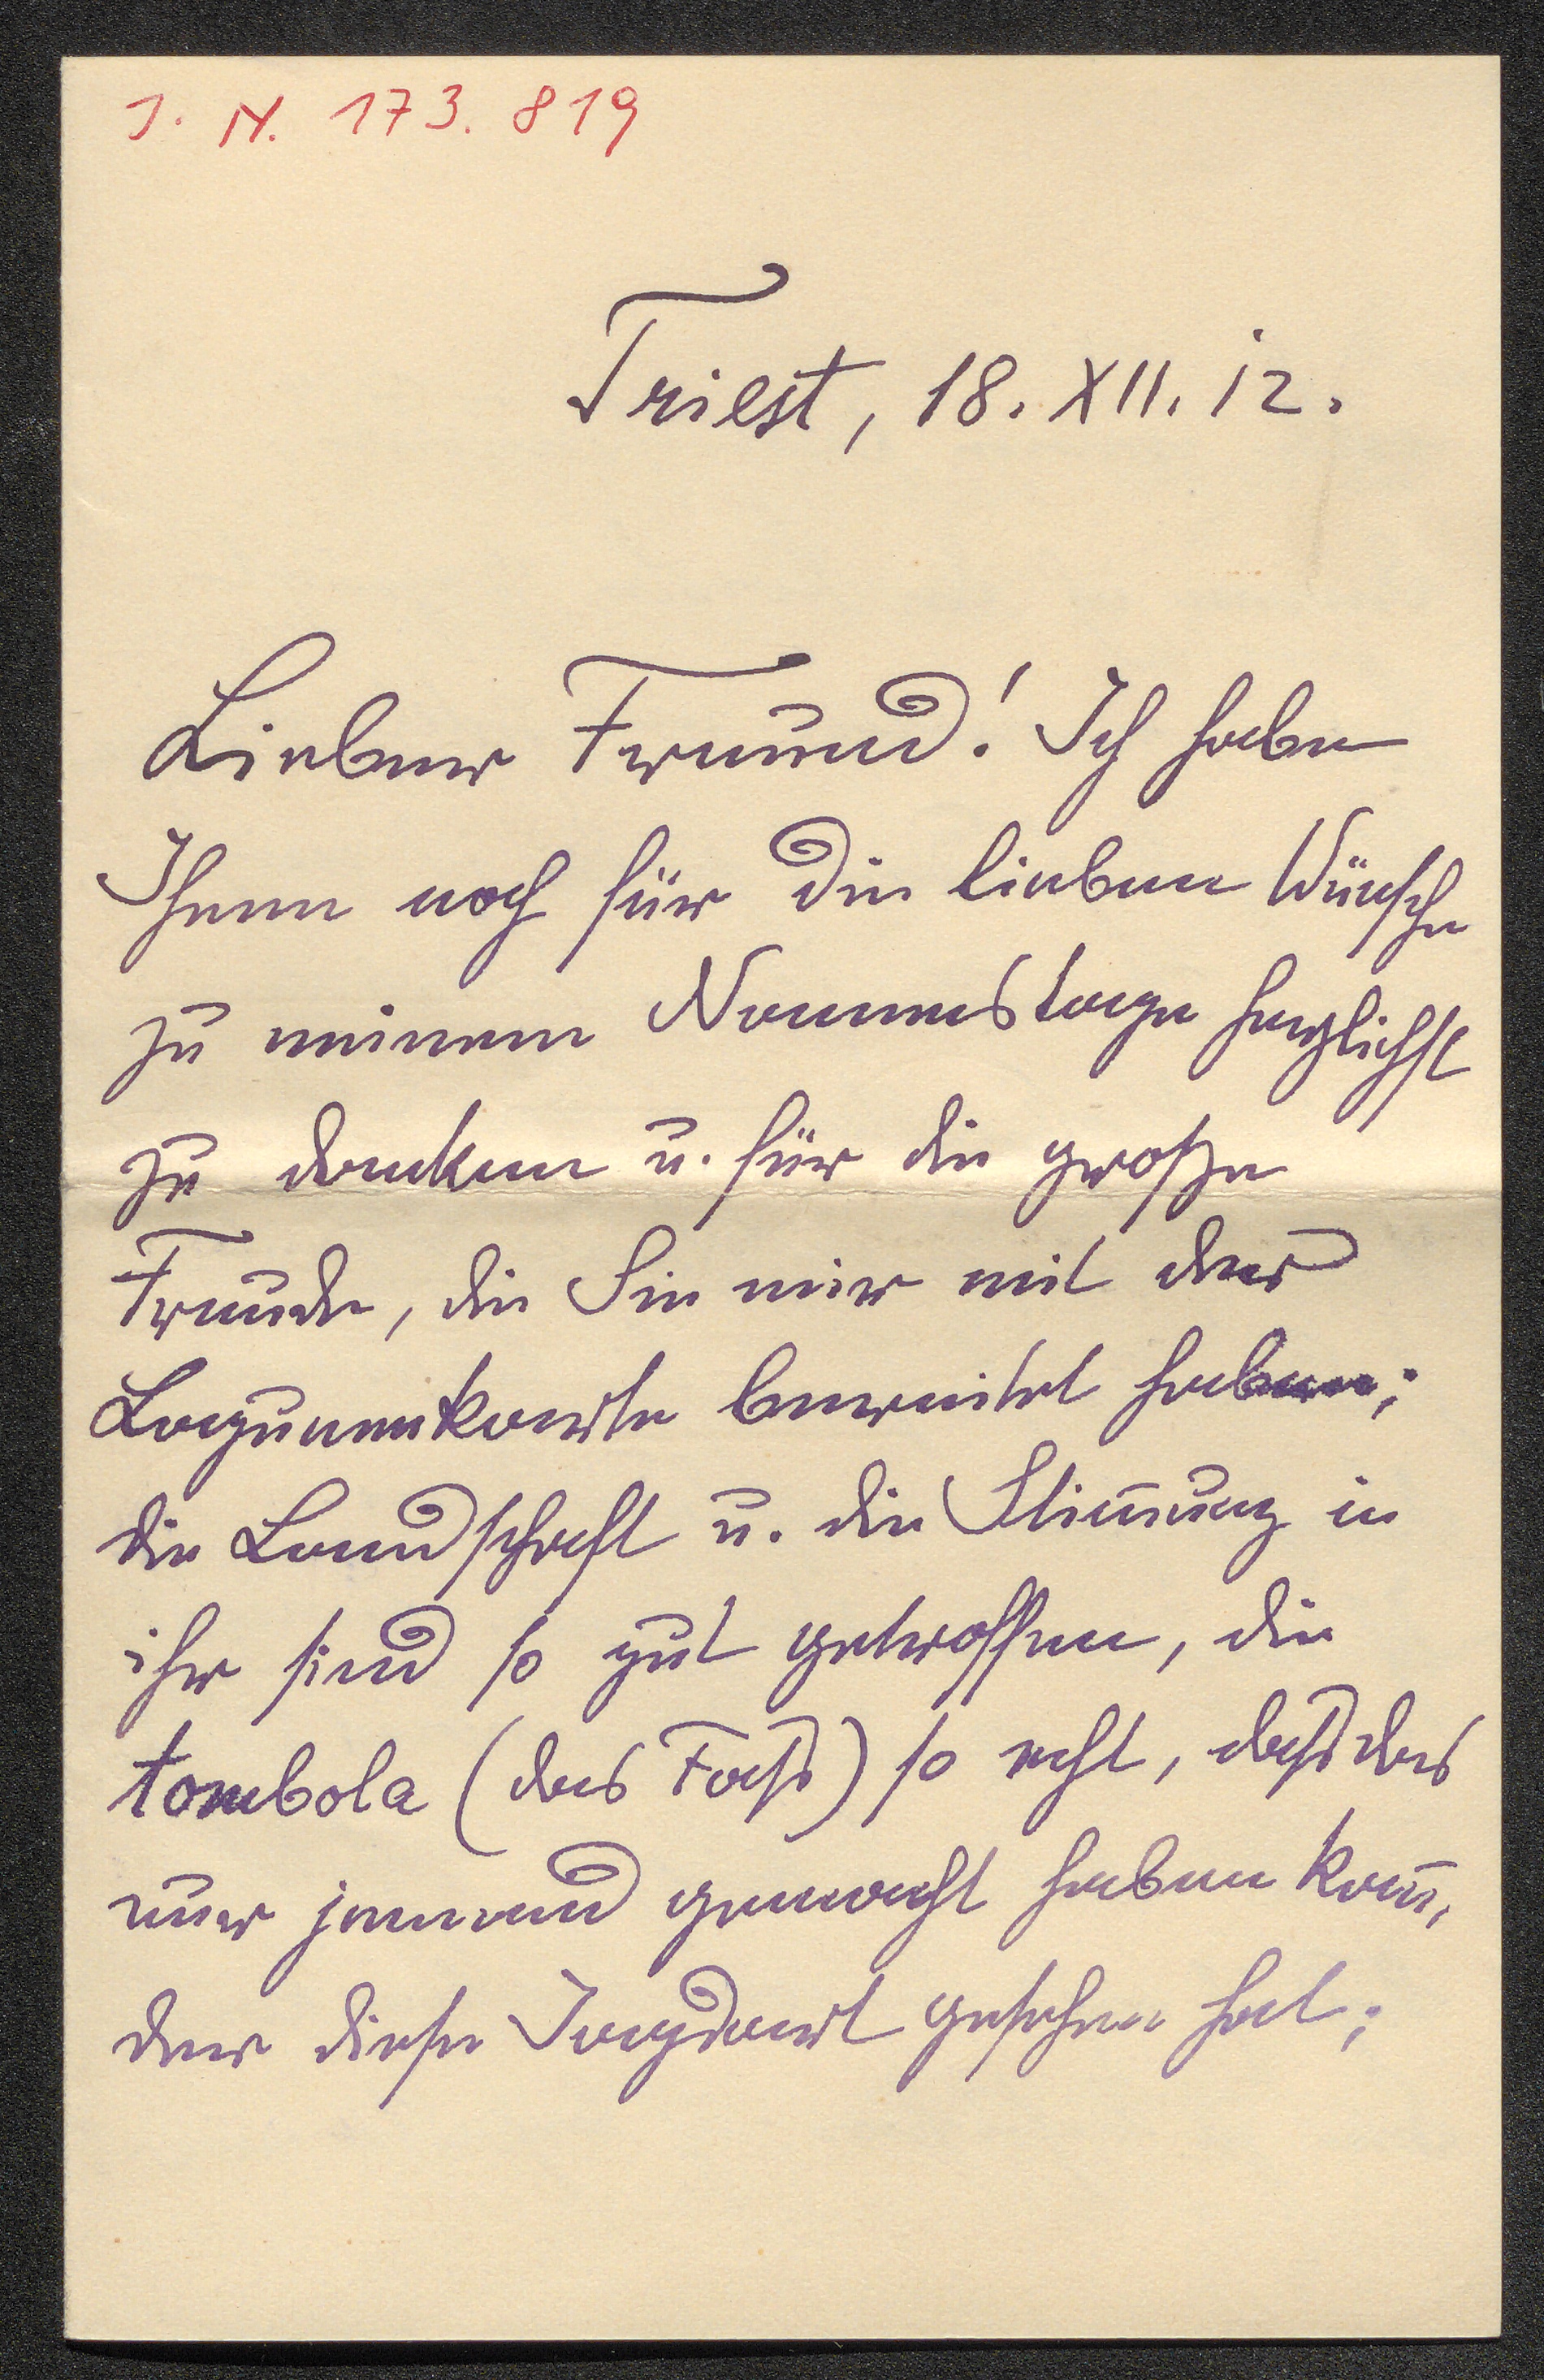 J. N. 173.819
Triest, 18. XII. 12.
Lieber Freund! Ich habe
Ihnen noch für die lieben Wünsche
zu meinem Namenstage herzlichst
zu danken u. für die große
Freude, die Sie mir mit der
Lagunenkarte bereitet haben;
die Landschaft u. die Stim̅ung in
ihr sind so gut getroffen, die
tombola (das Faß) so echt, daß das
nur jemand gemacht haben kan̅,
der diese Jagdart gesehen hat;